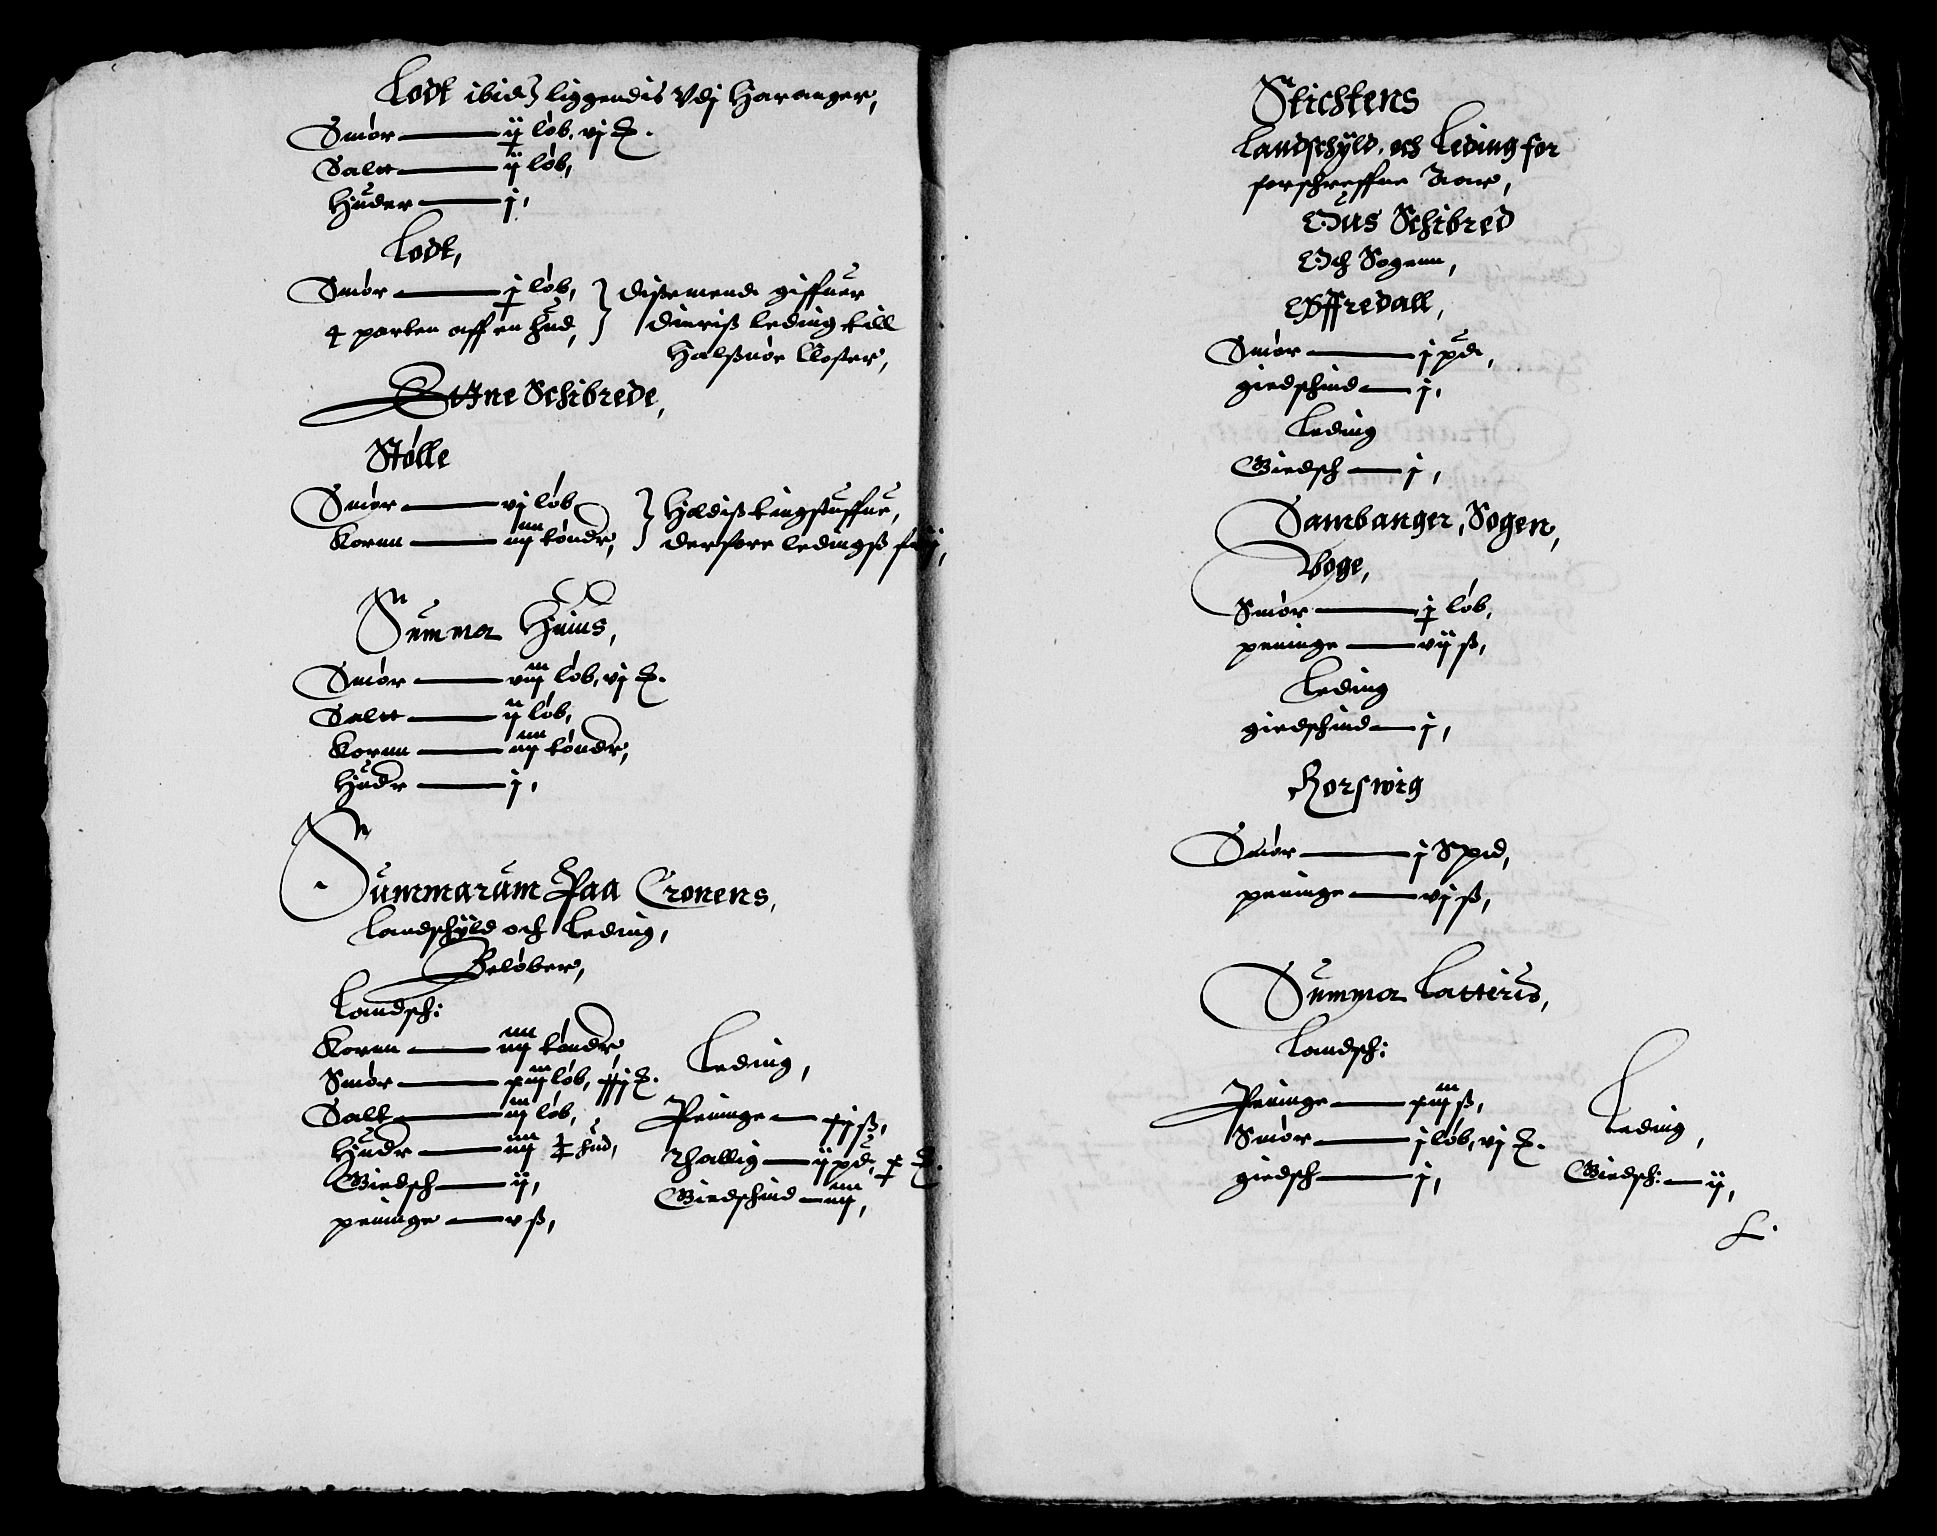 Lodt ibid: liggendis Vdj Haranger,
Smør — ij løb, vj ℔.
Saltt — ij løb,
Huder — j,
Lodt,
Smør — j løb, } Dissemend giffuer
4 parten aff en Hud, } dieriss leding till
Halssnør Closter,
Ettne Schibrede,
Stølle
Smør — vj løb } Holdiss tingstuffue,
Kornn — iiij tøndr, } derfore ledingss frij,
Summa Huius,
Smør — viij løb, vj ℔.
Saltt — ij løb,
Kornn — iiij tøndr,
Hudr — j,
Summarum Paa Cronens,
Landschyld och Leding,
Beløber,
Landsch:
Kornn — iiij tøndr,
Smør — xiij løb, ℔.
Salt — iij løb,
Hudr — iiij Hud,
Giedsch — ij,
peninge — v ß,
Leding,
Peninge — xj ß,
Thallig — ij pd, ℔.
Giedschind — iiij,
Stichtens
Landschyld, och Leding for
forschreffne Aar,
Ous Schibred
Och Sogenn,
Øffredall,
Smør — j pd,
giedschind — j,
Leding
Giedsch — j,
Sambanger, Sogen,
Voge,
Smør — j løb,
peninge — vij ß,
Leding
giedschind — j,
Korswig
Smør — j Spd,
peninge — vj ß,
Summa Latteris,
Landsch:
Peninge — xiij ß,
Smør — j løb, vj ℔.
giedsch — j,
Leding,
Giedsch: — ij,
L.